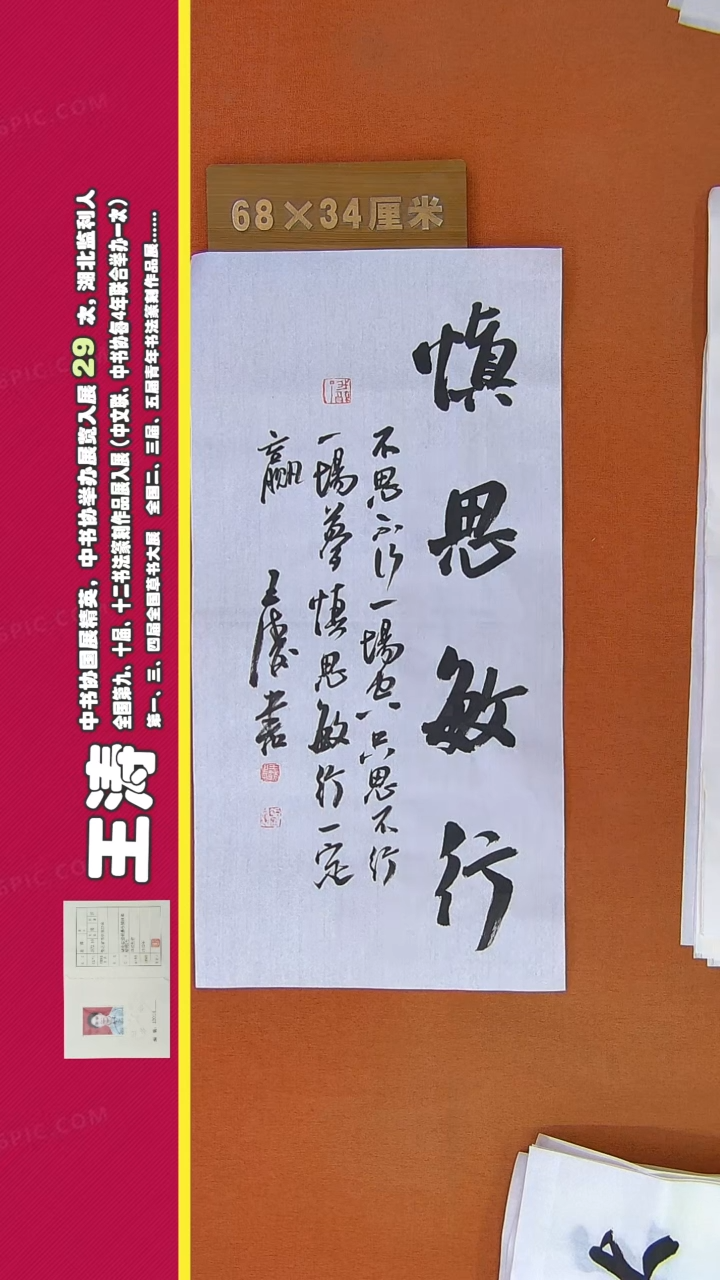 王涛
中书协国展精英，中书协举办展览入展 29 次，湖北监利人
全国第九、十届、十二书法篆刻作品展入展（中文联、中书协每4年联合举办一次）
第一、三、四届全国草书大展 全国二、三届、五届青年书法篆刻作品展......
68×34厘米
慎思敏行
不思不行一场空只思不行
一场梦慎思敏行一定
赢 王涛书